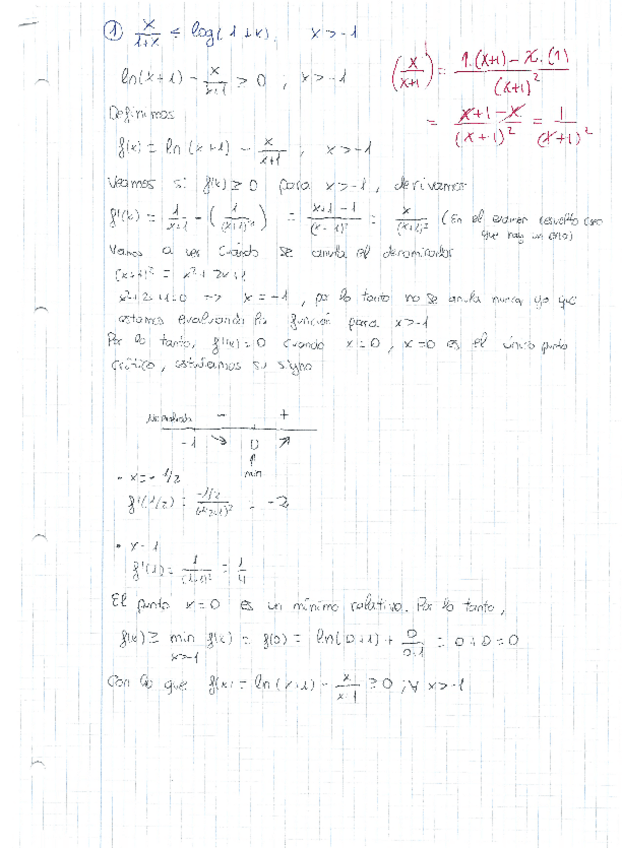 ① x/(1+x) ≤ log(1+x), x>-1
ln(x+1) - x/(x+1) ≥ 0 ; x>-1
(x/(x+1)) = (1·(x+1) - x·(1))/(x+1)²
= (x+1-x)/(x+1)² = 1/(x+1)²
Definimos
f(x) = ln(x+1) - x/(x+1) ; x>-1
Veamos si f(x) ≥ 0 para x>-1, derivamos
f'(x) = 1/(x+1) - (1/(x+1)²) = (x+1-1)/(x+1)² = x/(x+1)² (En el examen resuelto creo
que hay un error)
Vamos a ver cuándo se anula el denominador
(x+1)² = x²+2x+1
x²+2x+1=0 => x=-1, por lo tanto no se anula nunca ya que
estamos evaluando la función para x>-1
Por lo tanto, f'(x)=0 cuando x=0, x=0 es el único punto
crítico, estudiamos su signo
- +
-1 ↘ 0 ↗
↑
min
• x=-1/2
f'(1/2) = (-1/2)/(-1/2+1)² = -2
• x=1
f'(1) = 1/(1+1)² = 1/4
El punto x=0 es un mínimo relativo. Por lo tanto,
f(x) ≥ min f(x) = f(0) = ln(0+1) + 0/(0+1) = 0+0=0
x>-1
Con lo que f(x) = ln(x+1) - x/(x+1) ≥ 0 ; ∀ x>-1